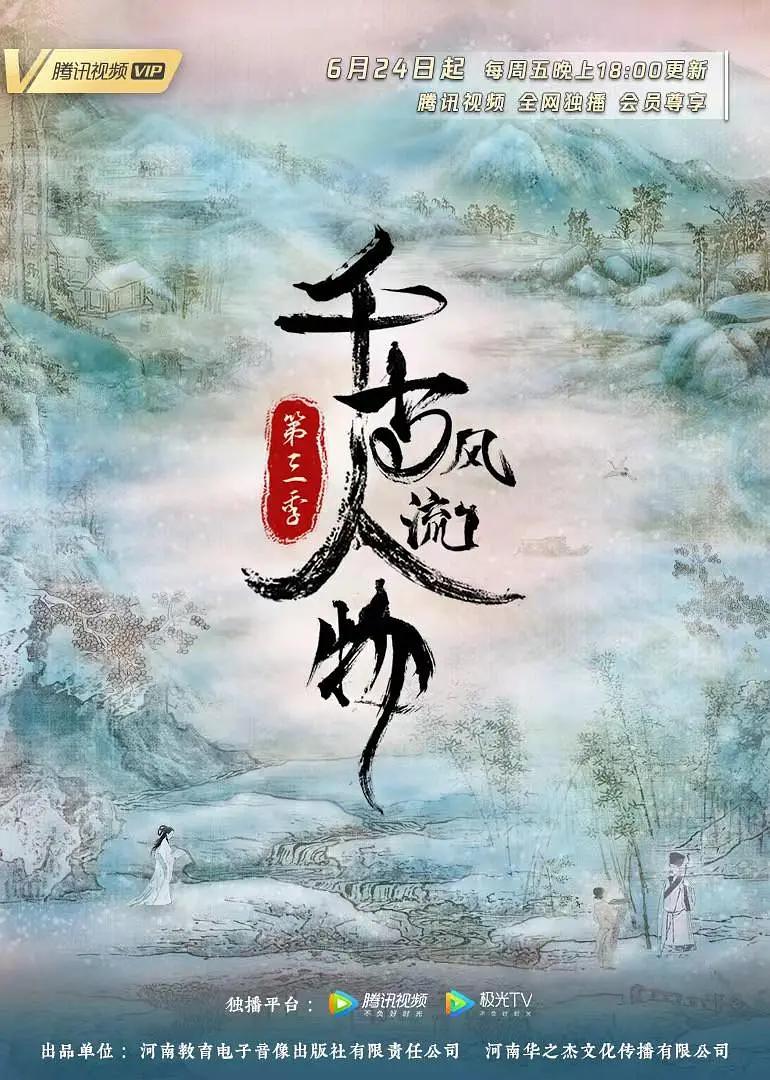 腾讯视频 VIP
6月24日起 每周五晚上18:00更新
腾讯视频 全网独播 会员尊享
千古风流人物
第三季
独播平台：腾讯视频 不负好时光 极光TV 不负好时光
出品单位：河南教育电子音像出版社有限责任公司 河南华之杰文化传播有限公司